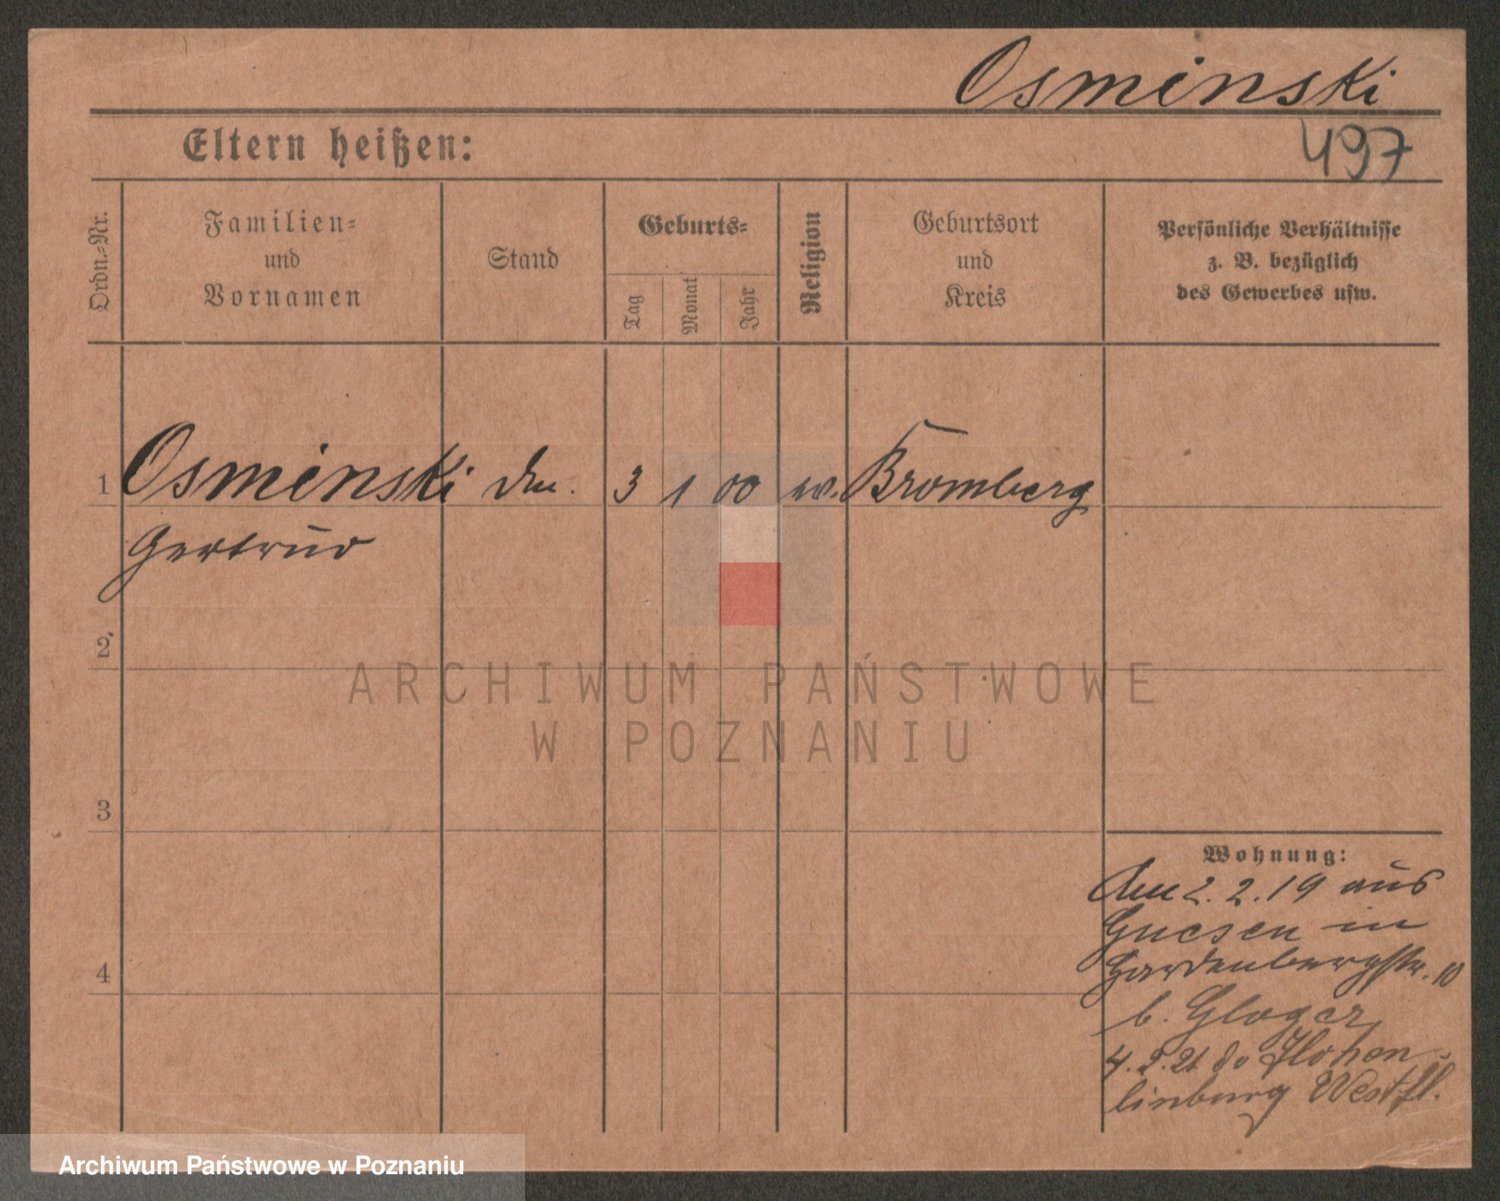 Osminski
Eltern heißen:
497
Ordn.=Nr.
Familien=
und
Vornamen
Stand
Geburts=
Tag
Monat
Jahr
Religion
Geburtsort
und
Kreis
Persönliche Verhältnisse
z. B. bezüglich
des Gewerbes usw.
1 Osminski 3 1 00 Bromberg
Gertrud
2
3
4
Wohnung:
2.2.19 aus
Gnesen in
Hardenbergstr. 10
b. Gloger
4. 21 do Hohen-
linburg Westfl.
ARCHIWUM PAŃSTWOWE
W POZNANIU
Archiwum Państwowe w Poznaniu